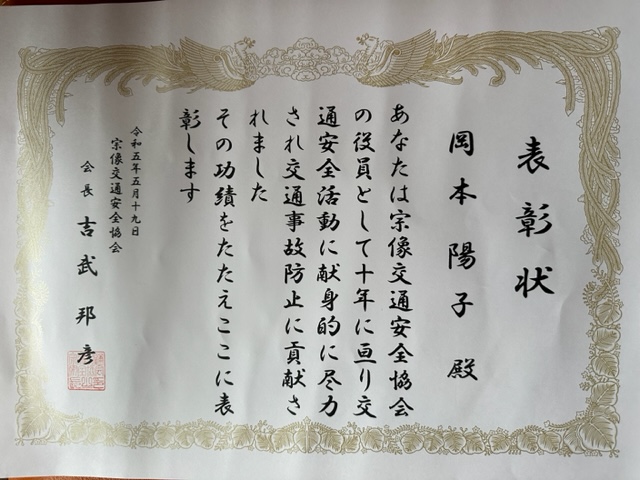 表彰状
岡本陽子 殿
あなたは宗像交通安全協会
の役員として十年に亘り交
通安全活動に献身的に尽力
され交通事故防止に貢献さ
れました
その功績をたたえここに表
彰します
令和五年五月十九日
宗像交通安全協会
会長 吉武邦彦